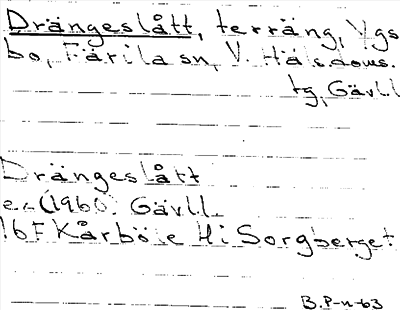 Drängeslått, terräng, Ygs
bo, Färila sn, V. Häls. doms.
tg, Gävll
Drängeslått
ek (1960) Gävll
16F Kårbö e Hi Sorgberget
B.P-n-63